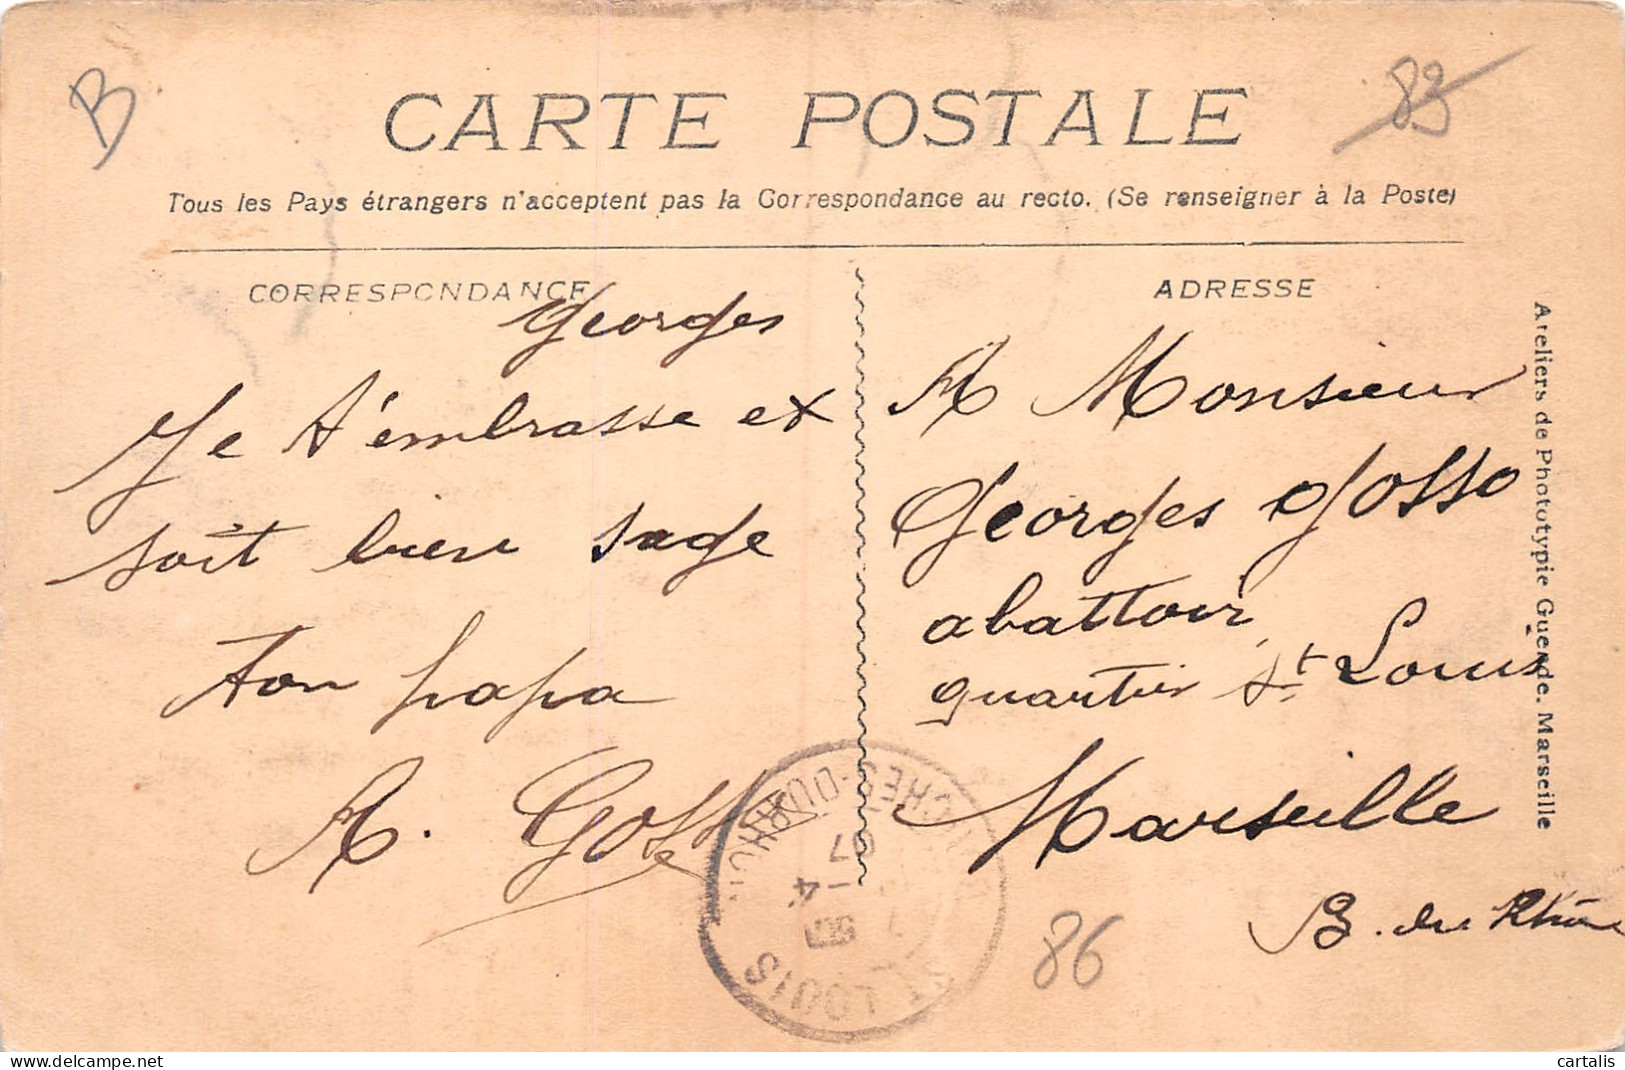 B
83
CARTE POSTALE
Tous les Pays étrangers n'acceptent pas la Correspondance au recto. (Se renseigner à la Poste)
CORRESPONDANCE
Georges
Je t'embrasse et
soit bien sage
ton papa
A. Gosso
ADRESSE
A Monsieur
Georges Gosso
abattoir
quartier St Louis
Marseille
B. du Rhône
Ateliers de Phototypie Guende. Marseille
ST LOUIS
BOUCHES-DU-RHONE
4
07
86
cartalis